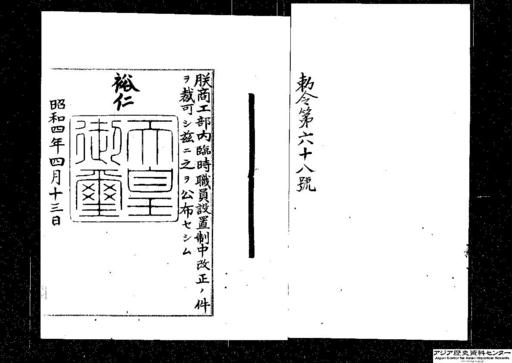 勅令第六十八號
朕商工部內臨時職員設置制中改正ノ件
ヲ裁可シ茲ニ之ヲ公布セシム
裕仁
天皇
御璽
昭和四年四月十三日
アジア歴史資料センター
Japan Center for Asian Historical Records